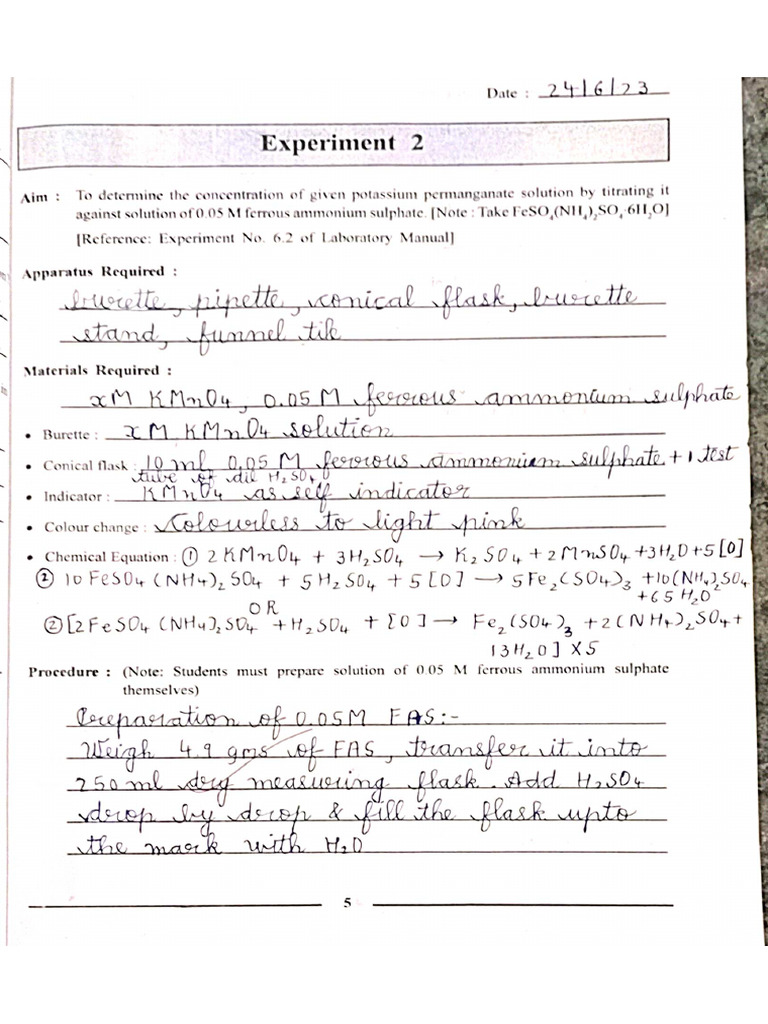 Date : 24/6/23
Experiment 2
Aim : To determine the concentration of given potassium permanganate solution by titrating it
against solution of 0.05 M ferrous ammonium sulphate. [Note : Take FeSO₄(NH₄)₂SO₄·6H₂O]
[Reference: Experiment No. 6.2 of Laboratory Manual]
Apparatus Required :
burette, pipette, conical flask, burette
stand, funnel tile
Materials Required :
xM KMnO₄, 0.05 M ferrous ammonium sulphate
• Burette : xM KMnO₄ solution
• Conical flask : 10 ml 0.05 M ferrous ammonium sulphate + 1 test
tube of dil H₂SO₄
• Indicator : KMnO₄ as self indicator
• Colour change : Colourless to light pink
• Chemical Equation : ① 2KMnO₄ + 3H₂SO₄ → K₂SO₄ + 2MnSO₄ + 3H₂O + 5[O]
② 10FeSO₄(NH₄)₂SO₄ + 5H₂SO₄ + 5[O] → 5Fe₂(SO₄)₃ + 10(NH₄)₂SO₄
+ 65H₂O
OR
② [2FeSO₄(NH₄)₂SO₄ + H₂SO₄ + [O] → Fe₂(SO₄)₃ + 2(NH₄)₂SO₄ +
13H₂O] X 5
Procedure : (Note: Students must prepare solution of 0.05 M ferrous ammonium sulphate
themselves)
Preparation of 0.05M FAS:-
Weigh 4.9 gms of FAS, transfer it into
250 ml dry measuring flask. Add H₂SO₄
drop by drop & fill the flask upto
the mark with H₂O
5